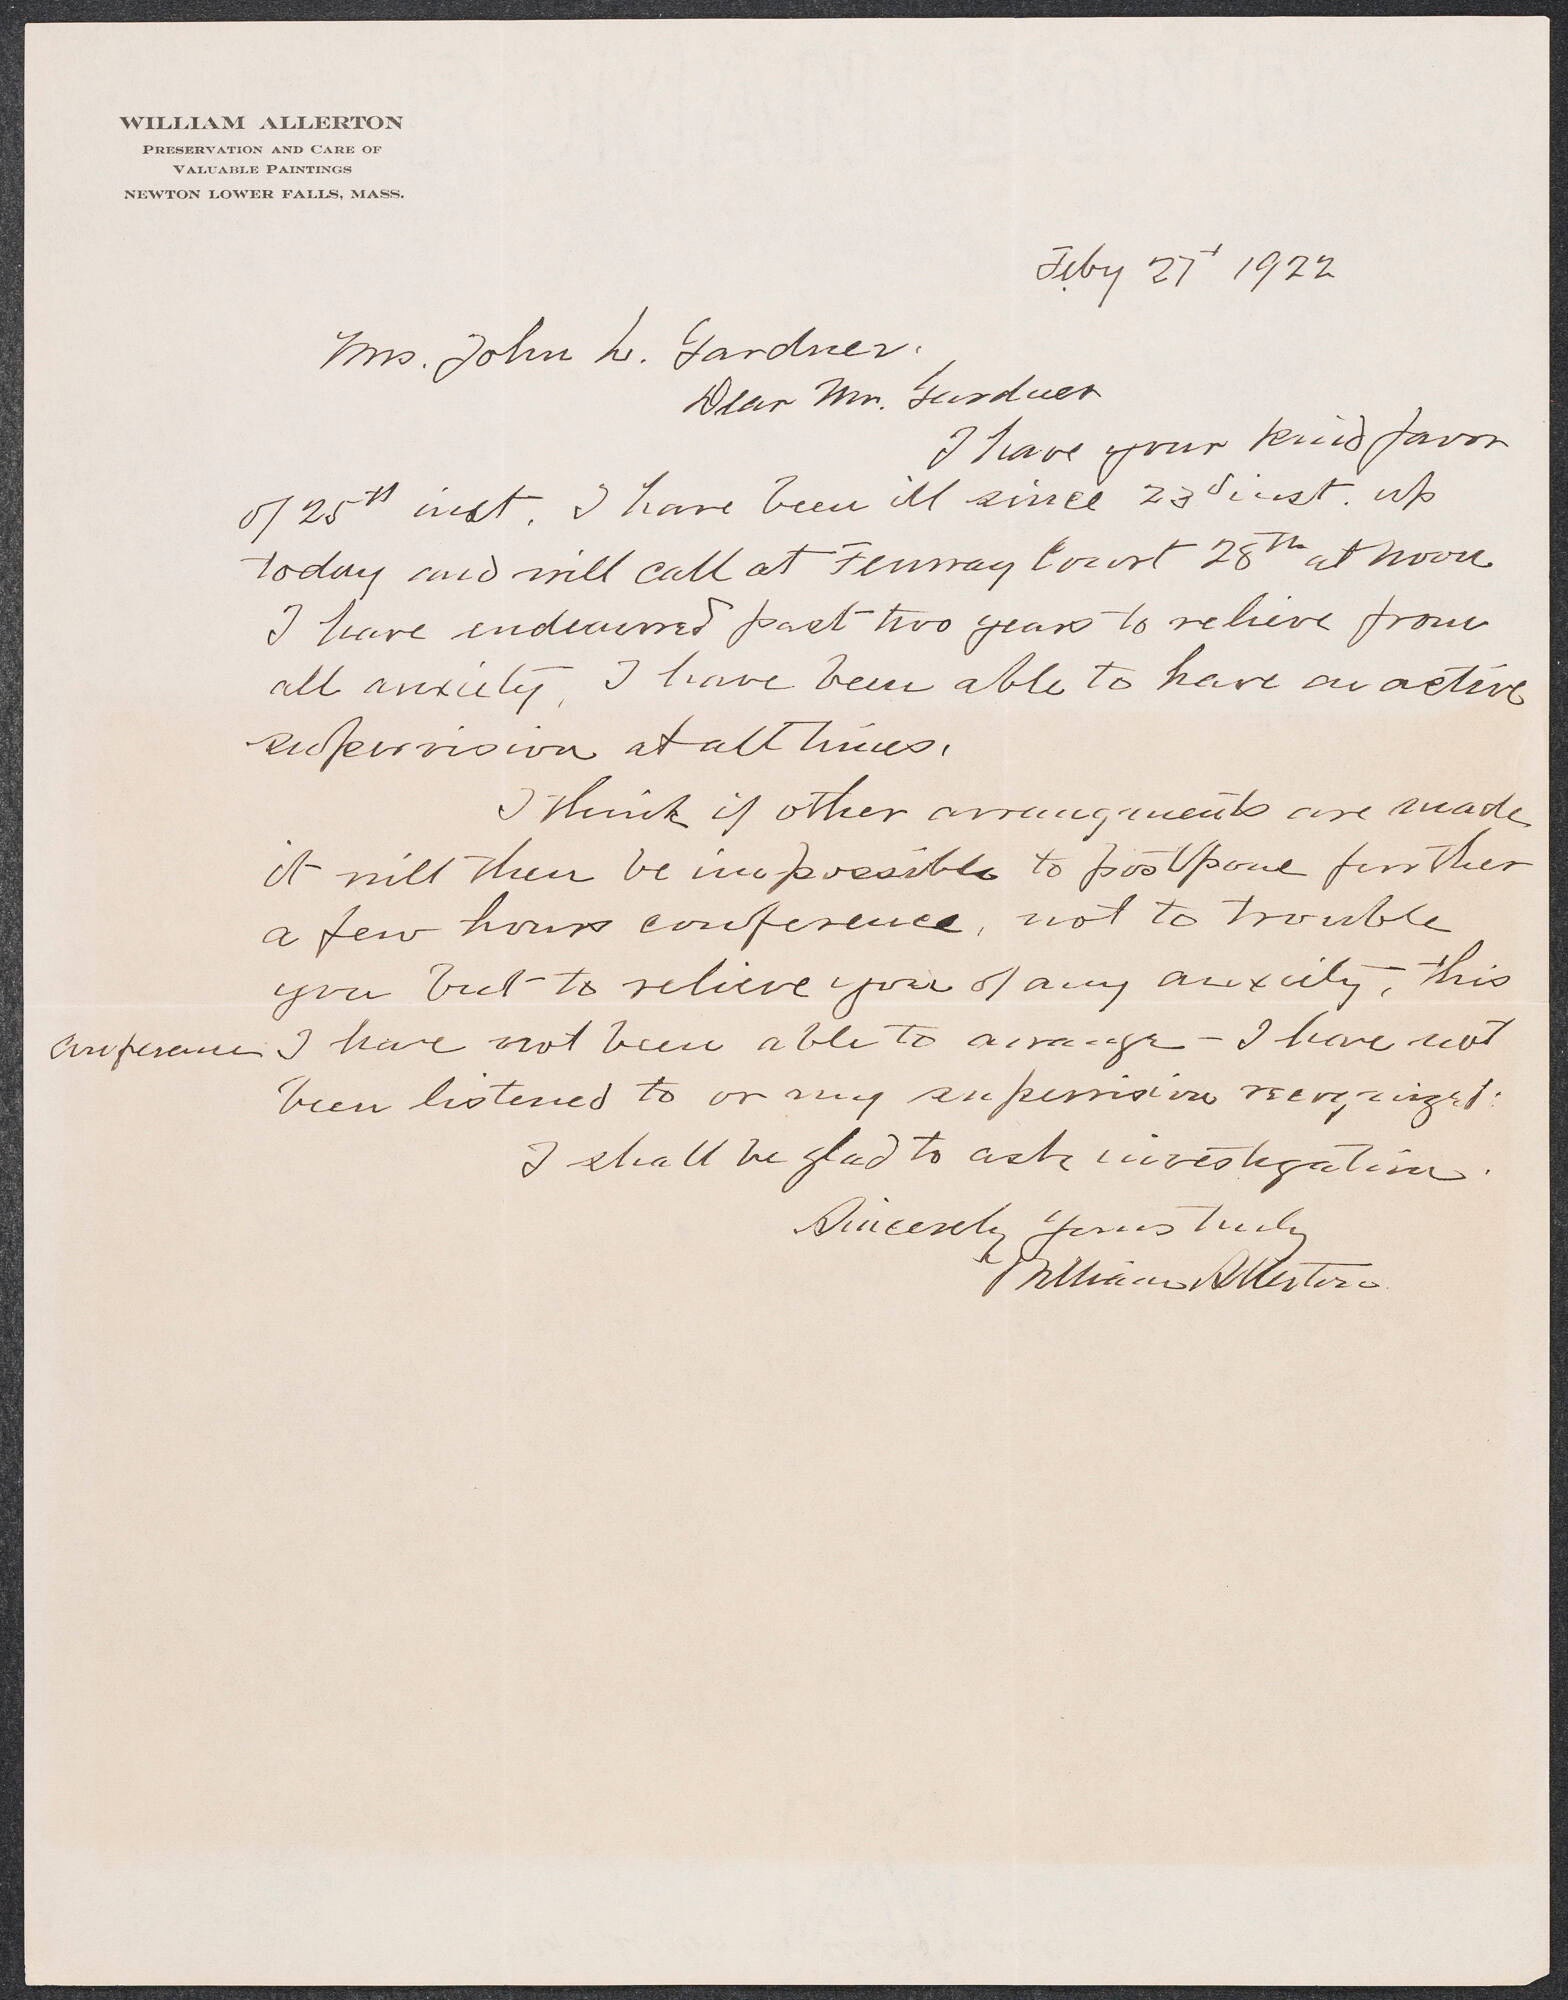 WILLIAM ALLERTON
PRESERVATION AND CARE OF
VALUABLE PAINTINGS
NEWTON LOWER FALLS, MASS.
Feby 27t 1922
Mrs. John L. Gardner.
Dear Mrs. Gardner
I have your kind favor
of 25th inst. I have been ill since 23d inst. up
today and will call at Fenway Court 28th at noon
I have endeavored past two years to relieve from
all anxiety, I have been able to have an active
supervision at all times.
I think if other arrangments are made
it will then be impossible to postpone further
a few hours conference, not to trouble
you but to relieve you of any anxiety, this
conference I have not been able to arrange - I have not
been listened to or my supervision recognized.
I shall be glad to ask investigation.
Sincerely Yours truly
William Allerton